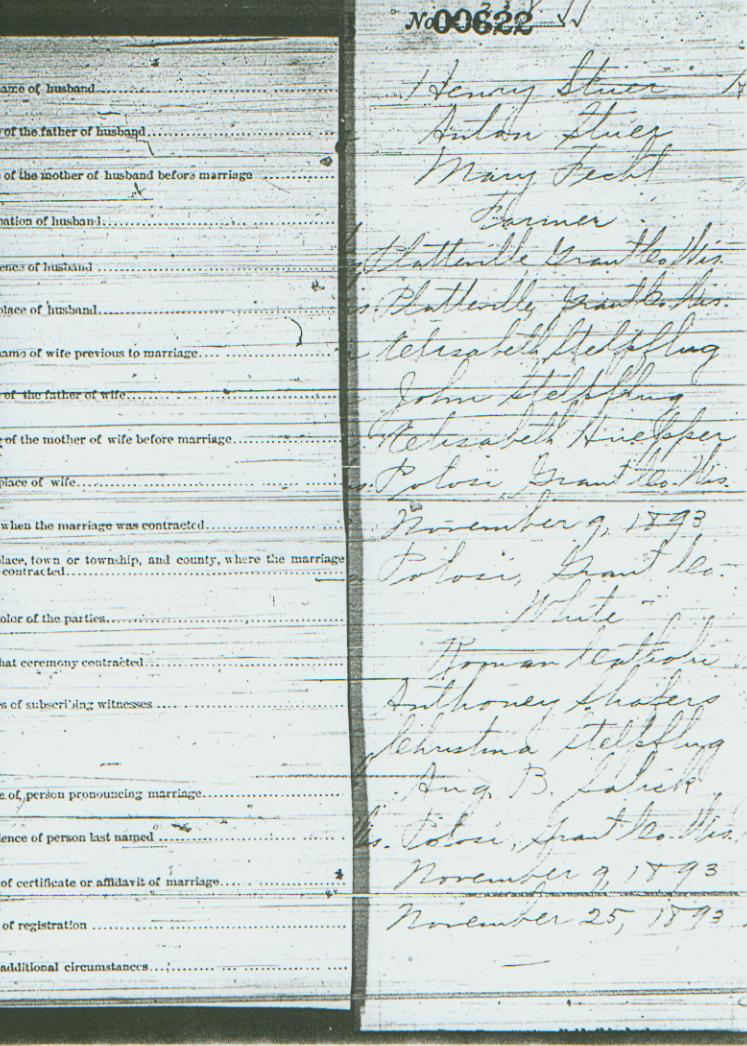 No 00622
ame of husband Henry Stuer
of the father of husband Anton Stuer
of the mother of husband before marriage Mary Fecht
pation of husband Farmer
ence of husband Platteville Grant Co. Wis.
place of husband Platteville, Grant Co. Wis.
ame of wife previous to marriage Aelisabeth Stelpflug
of the father of wife John Stelpflug
of the mother of wife before marriage Aelisabeth Huepper
place of wife Potosi, Grant Co. Wis.
when the marriage was contracted November 9, 1893
place, town or township, and county, where the marriage
contracted Potosi, Grant Co.
olor of the parties White
hat ceremony contracted Roman Catholic
s of subscribing witnesses Anthoney
Christina Stelpflug
e of person pronouncing marriage Aug. B. Salick
dence of person last named Potosi, Grant Co. Wis.
of certificate or affidavit of marriage November 9, 1893
of registration November 25, 1893
additional circumstances —